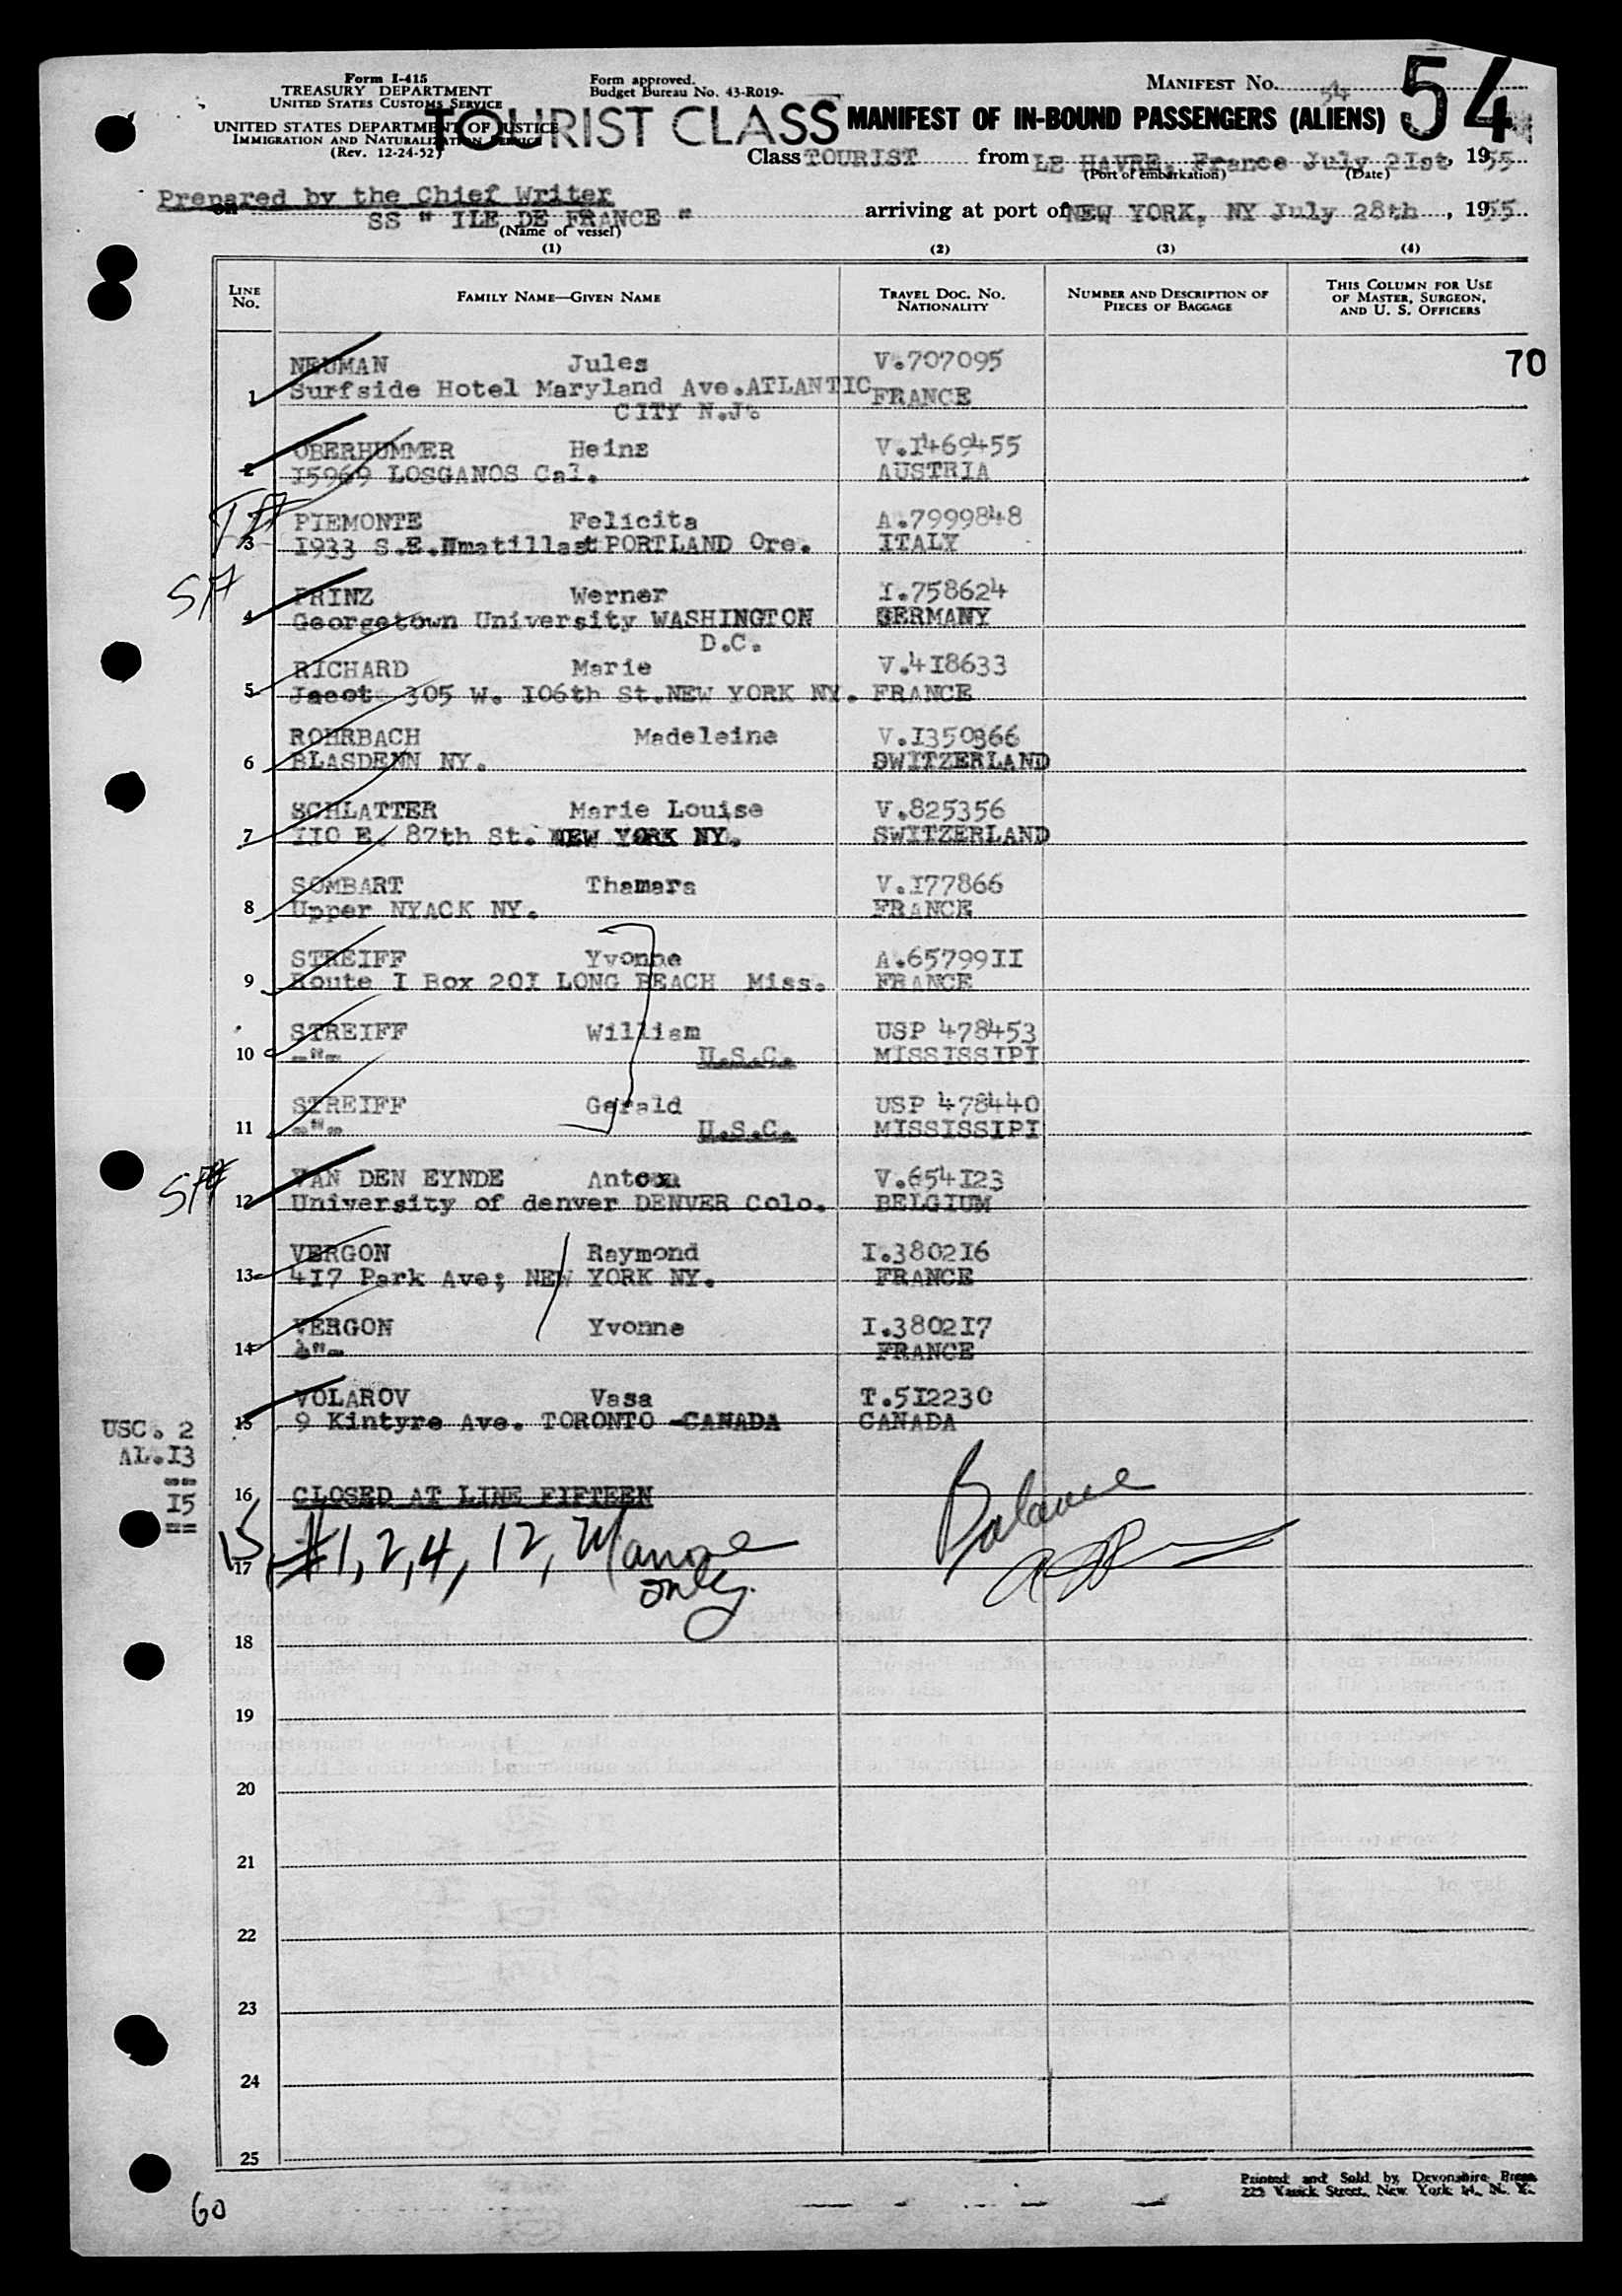 Form I-415
TREASURY DEPARTMENT
UNITED STATES CUSTOMS SERVICE
UNITED STATES DEPARTMENT OF JUSTICE
IMMIGRATION AND NATURALIZATION SERVICE
(Rev. 12-24-52)
Form approved.
Budget Bureau No. 43-R019-
MANIFEST No. 54
54
TOURIST CLASS MANIFEST OF IN-BOUND PASSENGERS (ALIENS)
Class TOURIST from LE HAVRE, France July 2Ist, 1955
(Port of embarkation) (Date)
Prepared by the Chief Writer
on SS " ILE DE FRANCE " arriving at port of NEW YORK, NY July 28th, 1955
(Name of vessel)
(1) (2) (3) (4)
LINE No. FAMILY NAME—GIVEN NAME TRAVEL DOC. No. NATIONALITY NUMBER AND DESCRIPTION OF PIECES OF BAGGAGE THIS COLUMN FOR USE OF MASTER, SURGEON, AND U. S. OFFICERS
70
NEUMAN Jules V.707095
1 Surfside Hotel Maryland Ave.ATLANTIC FRANCE
CITY N.J.
OBERHUMMER Heinz V.I469455
2 I5969 LOSGANOS Cal. AUSTRIA
PIEMONTE Felicita A.7999848
3 I933 S.E.Nmatillast PORTLAND Ore. ITALY
PRINZ Werner I.758624
4 Georgetown University WASHINGTON GERMANY
D.C.
RICHARD Marie V.4I8633
5 Jacot 305 W. I06th St.NEW YORK NY. FRANCE
ROHRBACH Madeleine V.I350366
6 BLASDENN NY. SWITZERLAND
SCHLATTER Marie Louise V.825356
7 IIO E. 87th St. NEW YORK NY. SWITZERLAND
SOMBART Thamara V.I77866
8 Upper NYACK NY. FRANCE
STREIFF Yvonne A.65799II
9 Route I Box 20I LONG BEACH Miss. FRANCE
STREIFF William USP 478453
10 -"- U.S.C. MISSISSIPI
STREIFF Gerald USP 478440
11 -"- U.S.C. MISSISSIPI
VAN DEN EYNDE Anton V.654I23
12 University of denver DENVER Colo. BELGIUM
VERGON Raymond I.3802I6
13 4I7 Park Ave; NEW YORK NY. FRANCE
VERGON Yvonne I.3802I7
14 -"- FRANCE
VOLAROV Vasa T.5I2230
15 9 Kintyre Ave. TORONTO -CANADA CANADA
USC. 2
AL.I3
==
I5
==
16 CLOSED AT LINE FIFTEEN
Balance
17 #1,2,4, 12,
only.
18
19
20
21
22
23
24
25
Printed and Sold by Devonshire Press
225 Varick Street, New York 14, N. Y.
60